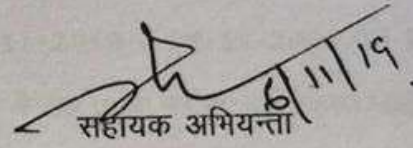 6/11/19
सहायक अभियन्ता